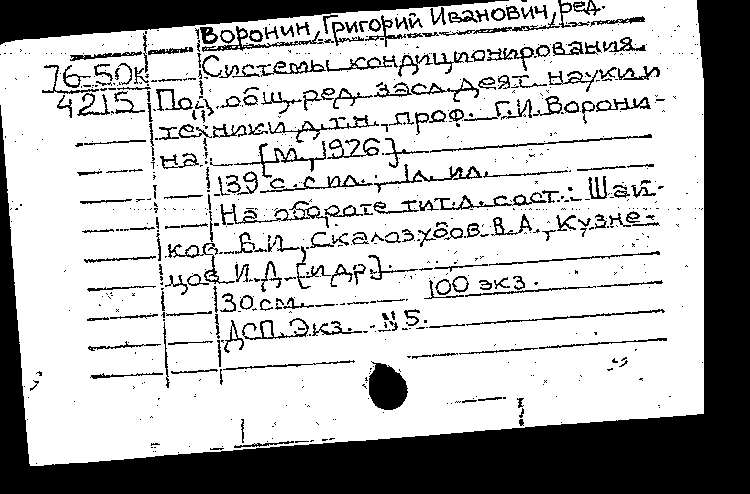 Воронин, Григорий Иванович, ред.
76-50к Системы кондиционирования.
4215 Под общ. ред. засл. деят. науки и
техники д.т.н., проф. Г.И. Ворони-
на. [М., 1926].
139 с. с ил.; 1л. ил.
На обороте тит. л. сост.: Шай-
ков В.И., Скалозубов В.А., Кузне-
цов И.Д. [и др.].
30 см. 100 экз.
ДСП. Экз. N5.